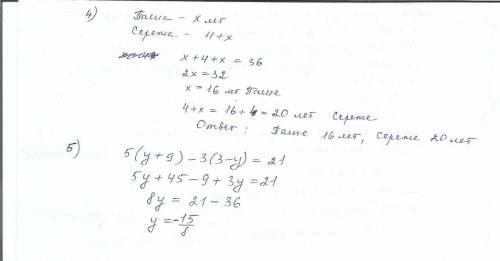 4) Паша - x лет
Сережа - 4+x
x+4+x = 36
2x=32
x=16 лет Паше
4+x = 16+4=20 лет Сереже
Ответ: Паше 16 лет, Сереже 20 лет
5) 5(y+9)-3(3-y)=21
5y+45-9+3y=21
8y = 21-36
y=-15/8